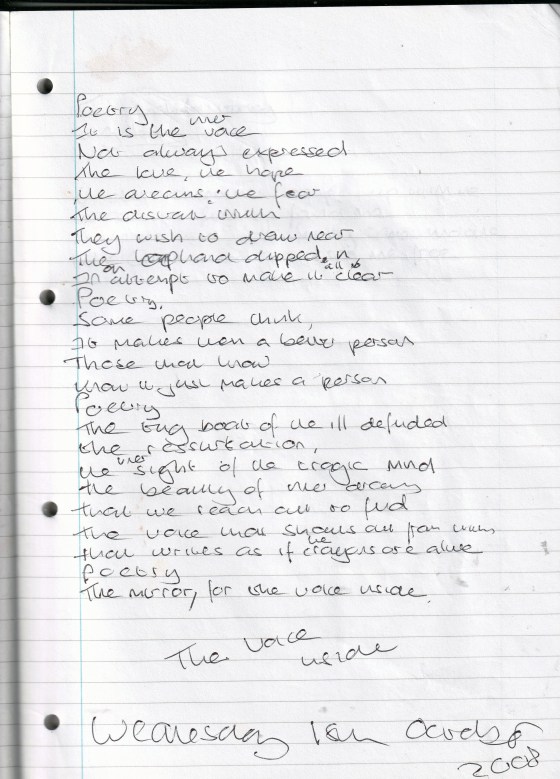 Poetry
It is the inner voice
Not always expressed
The love, the hope
the dreams, the fear
The distrait within
They wish to draw near
The hand dipped in
In an attempt to make it all so clear
Poetry,
Some people think,
It makes them a better person
Those that know
know it just makes a person
Poetry
The tug boat of the ill defuded
the
the inner sight of the tragic mind
the beauty of inner dreams
that we reach out to find
The voice that shouts out from within
that writes as if the crayons are alive
Poetry
The mirror, for the voice inside.
The voice
inside
Wednesday
2008